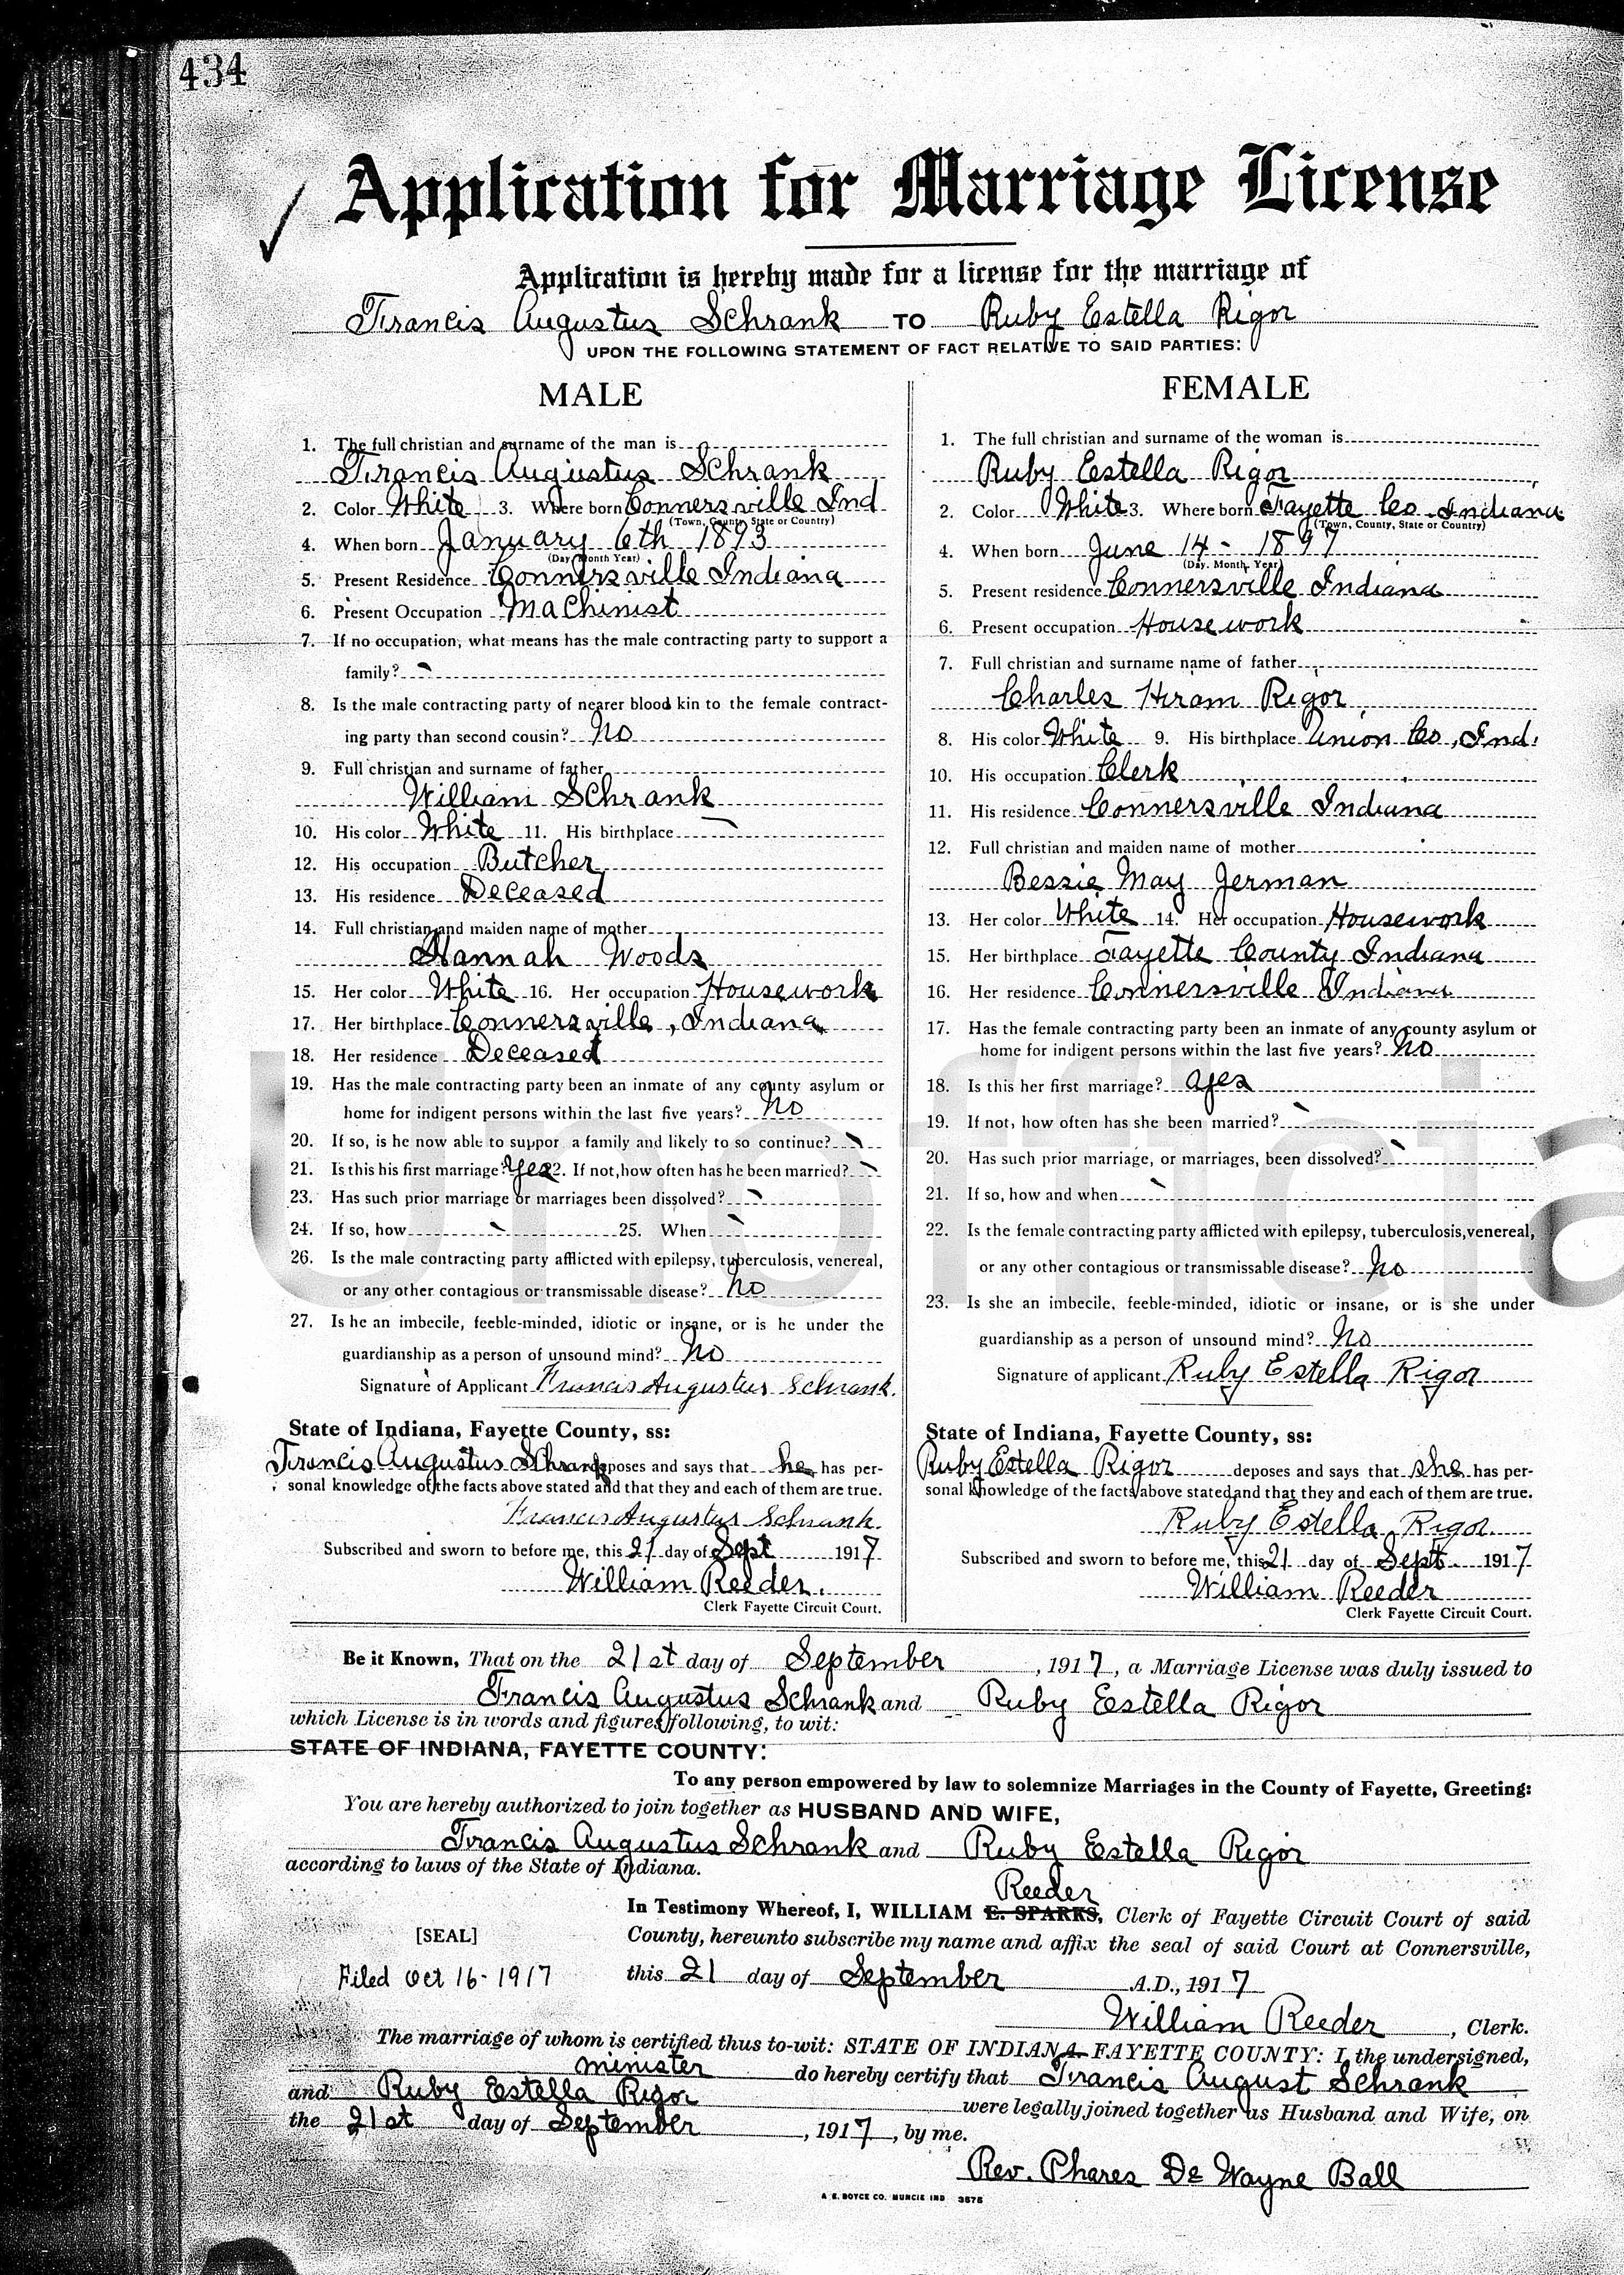 434
Application for Marriage License
Application is hereby made for a license for the marriage of
Francis Augustus Schrank TO Ruby Estella Rigor
UPON THE FOLLOWING STATEMENT OF FACT RELATIVE TO SAID PARTIES:
MALE
1. The full christian and surname of the man is
Francis Augustus Schrank
2. Color White 3. Where born Connersville Ind
(Town, County, State or Country)
4. When born January 6th 1893
(Day Month Year)
5. Present Residence Connersville Indiana
6. Present Occupation Machinist
7. If no occupation, what means has the male contracting party to support a
family?
8. Is the male contracting party of nearer blood kin to the female contract-
ing party than second cousin? No
9. Full christian and surname of father
William Schrank
10. His color White 11. His birthplace
12. His occupation Butcher
13. His residence Deceased
14. Full christian and maiden name of mother
Hannah Woods
15. Her color White 16. Her occupation Housework
17. Her birthplace Connersville, Indiana
18. Her residence Deceased
19. Has the male contracting party been an inmate of any county asylum or
home for indigent persons within the last five years? No
20. If so, is he now able to suppor a family and likely to so continue?
21. Is this his first marriage? Yes 22. If not, how often has he been married?
23. Has such prior marriage or marriages been dissolved?
24. If so, how 25. When
26. Is the male contracting party afflicted with epilepsy, tuberculosis, venereal,
or any other contagious or transmissable disease? No
27. Is he an imbecile, feeble-minded, idiotic or insane, or is he under the
guardianship as a person of unsound mind? No
Signature of Applicant Francis Augustus Schrank.
State of Indiana, Fayette County, ss:
Francis Augustus Schrank deposes and says that he has per-
sonal knowledge of the facts above stated and that they and each of them are true.
Francis Augustus Schrank.
Subscribed and sworn to before me, this 21 day of Sept 1917
William Reeder.
Clerk Fayette Circuit Court.
FEMALE
1. The full christian and surname of the woman is
Ruby Estella Rigor
2. Color White 3. Where born Fayette Co Indiana
(Town, County, State or Country)
4. When born June 14 - 1897
(Day. Month, Year)
5. Present residence Connersville Indiana
6. Present occupation Housework
7. Full christian and surname name of father
Charles Hiram Rigor
8. His color White 9. His birthplace Union Co, Ind.
10. His occupation Clerk
11. His residence Connersville Indiana
12. Full christian and maiden name of mother
Bessie May Jerman
13. Her color White 14. Her occupation Housework
15. Her birthplace Fayette County Indiana
16. Her residence Connersville Indiana
17. Has the female contracting party been an inmate of any county asylum or
home for indigent persons within the last five years? No
18. Is this her first marriage? Yes
19. If not, how often has she been married?
20. Has such prior marriage, or marriages, been dissolved?
21. If so, how and when
22. Is the female contracting party afflicted with epilepsy, tuberculosis, venereal,
or any other contagious or transmissable disease? No
23. Is she an imbecile, feeble-minded, idiotic or insane, or is she under
guardianship as a person of unsound mind? No
Signature of applicant Ruby Estella Rigor
State of Indiana, Fayette County, ss:
Ruby Estella Rigor deposes and says that she has per-
sonal knowledge of the facts above stated and that they and each of them are true.
Ruby Estella Rigor.
Subscribed and sworn to before me, this 21 day of Sept. 1917
William Reeder
Clerk Fayette Circuit Court.
Be it Known, That on the 21st day of September, 1917, a Marriage License was duly issued to
Francis Augustus Schrank and Ruby Estella Rigor
which License is in words and figures following, to wit:
STATE OF INDIANA, FAYETTE COUNTY:
To any person empowered by law to solemnize Marriages in the County of Fayette, Greeting:
You are hereby authorized to join together as HUSBAND AND WIFE,
Francis Augustus Schrank and Ruby Estella Rigor
according to laws of the State of Indiana.
Reeder
In Testimony Whereof, I, WILLIAM E. SPARKS, Clerk of Fayette Circuit Court of said
[SEAL] County, hereunto subscribe my name and affix the seal of said Court at Connersville,
Filed Oct 16-1917 this 21 day of September A.D., 1917
William Reeder, Clerk.
The marriage of whom is certified thus to-wit: STATE OF INDIANA FAYETTE COUNTY: I, the undersigned,
minister do hereby certify that Francis August Schrank
and Ruby Estella Rigor were legally joined together as Husband and Wife, on
the 21st day of September, 1917, by me.
Rev. Phares De Wayne Ball
A. E. BOYCE CO. MUNCIE IND 3575
Unofficia